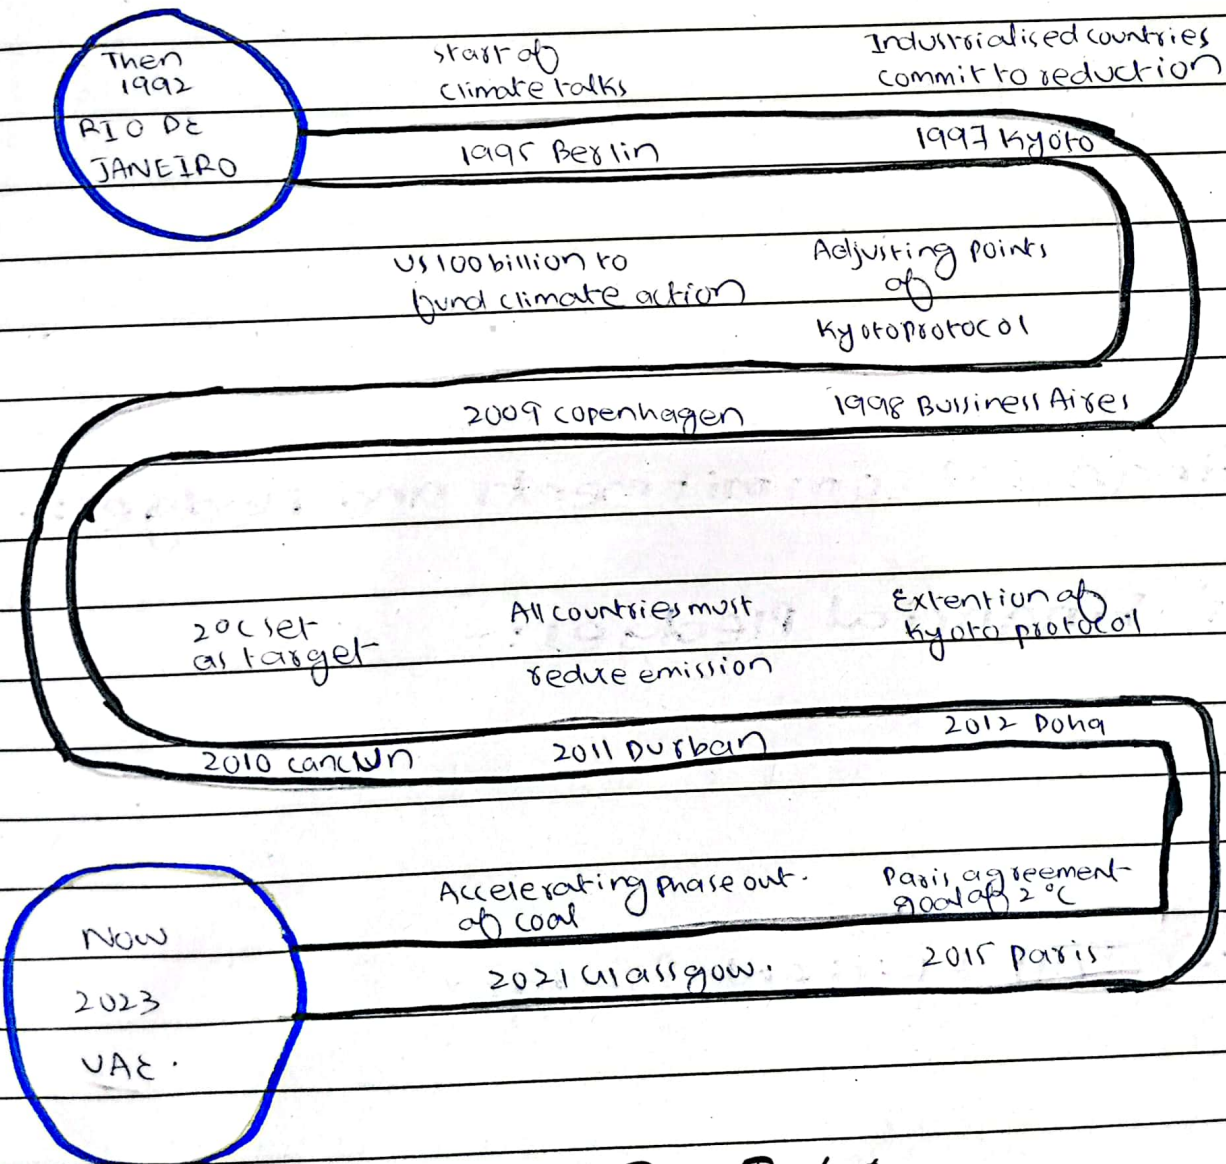 Then
1992
RIO DE
JANEIRO
start of
climate talks
Industrialised countries
commit to reduction
1995 Berlin
1997 Kyoto
US 100 billion to
fund climate action
Adjusting points
of
Kyoto protocol
2009 copenhagen
1998 Bussiness Aires
2°C set
as target
All countries must
reduce emission
Extention of
Kyoto protocol
2010 cancun
2011 Durban
2012 Doha
Accelerating phase out.
of coal
Paris agreement
goal of 2°C
2021 Glassgow.
2015 Paris
Now
2023
UAE.